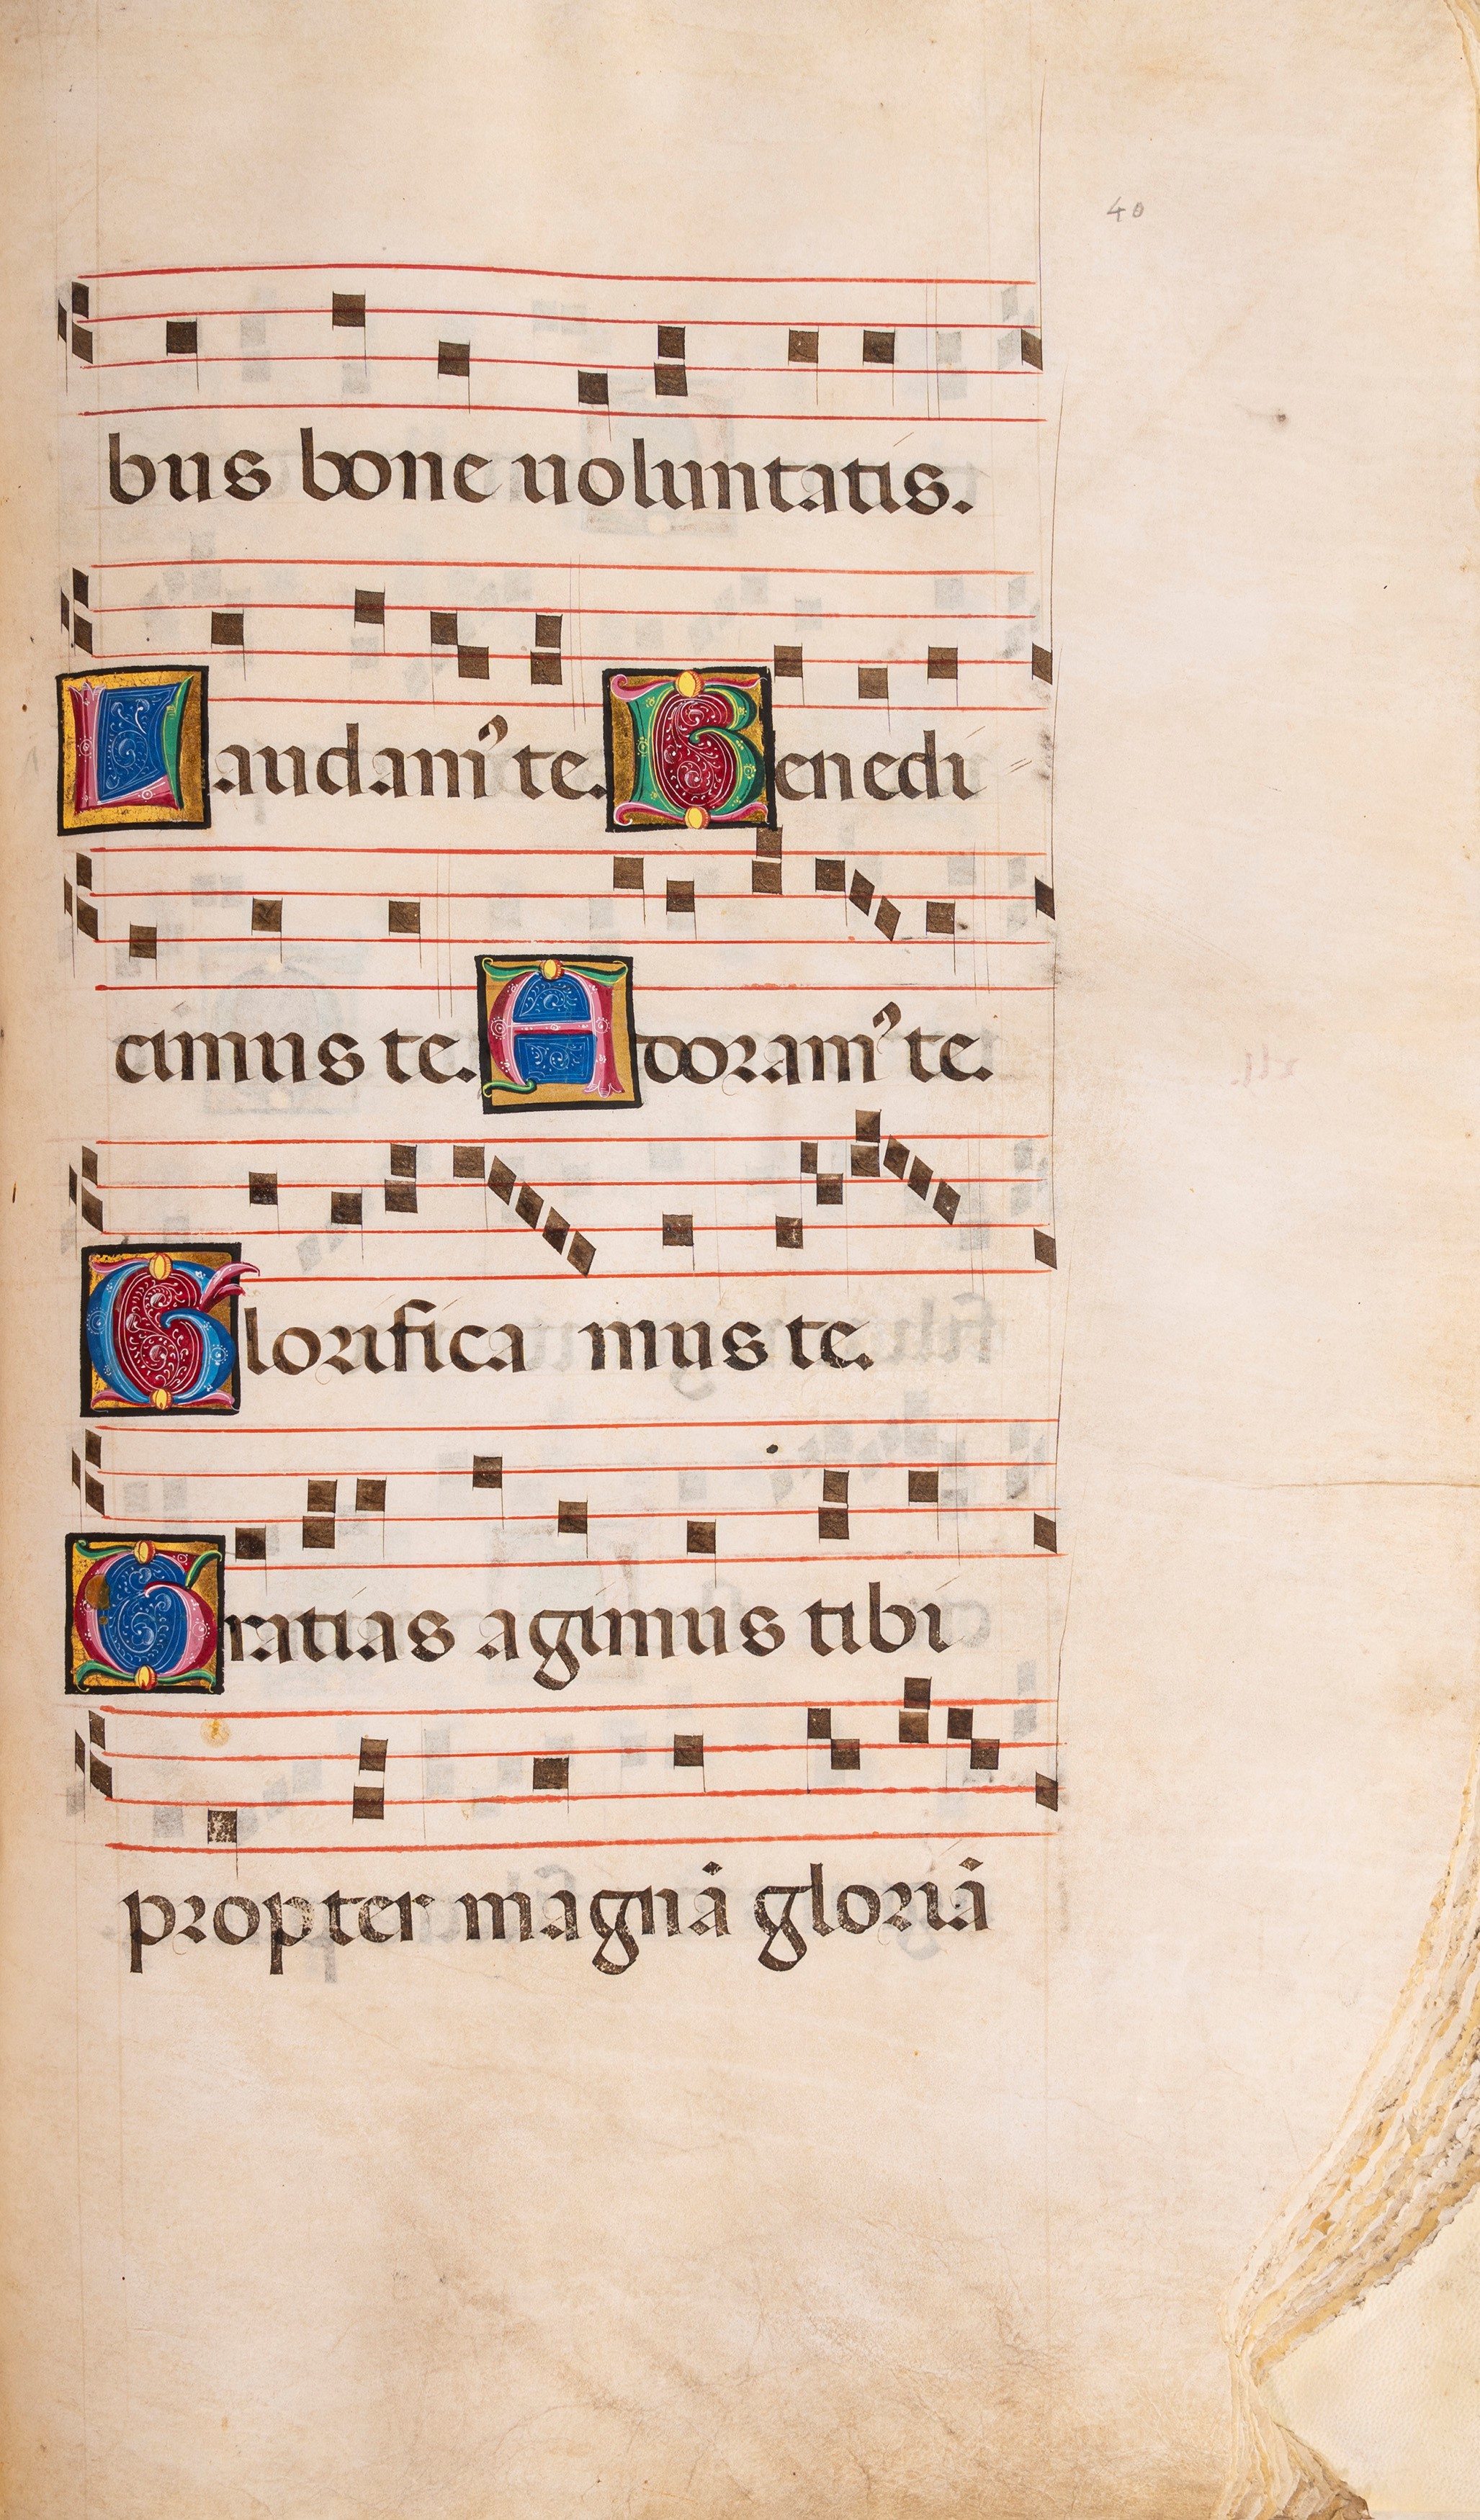 40
bus bone uoluntatis.
Laudamꝰ te. Benedi
cimus te. Adoramꝰ te.
Glorifica mus te.
Gratias agimus tibi
propter magnā gloriā